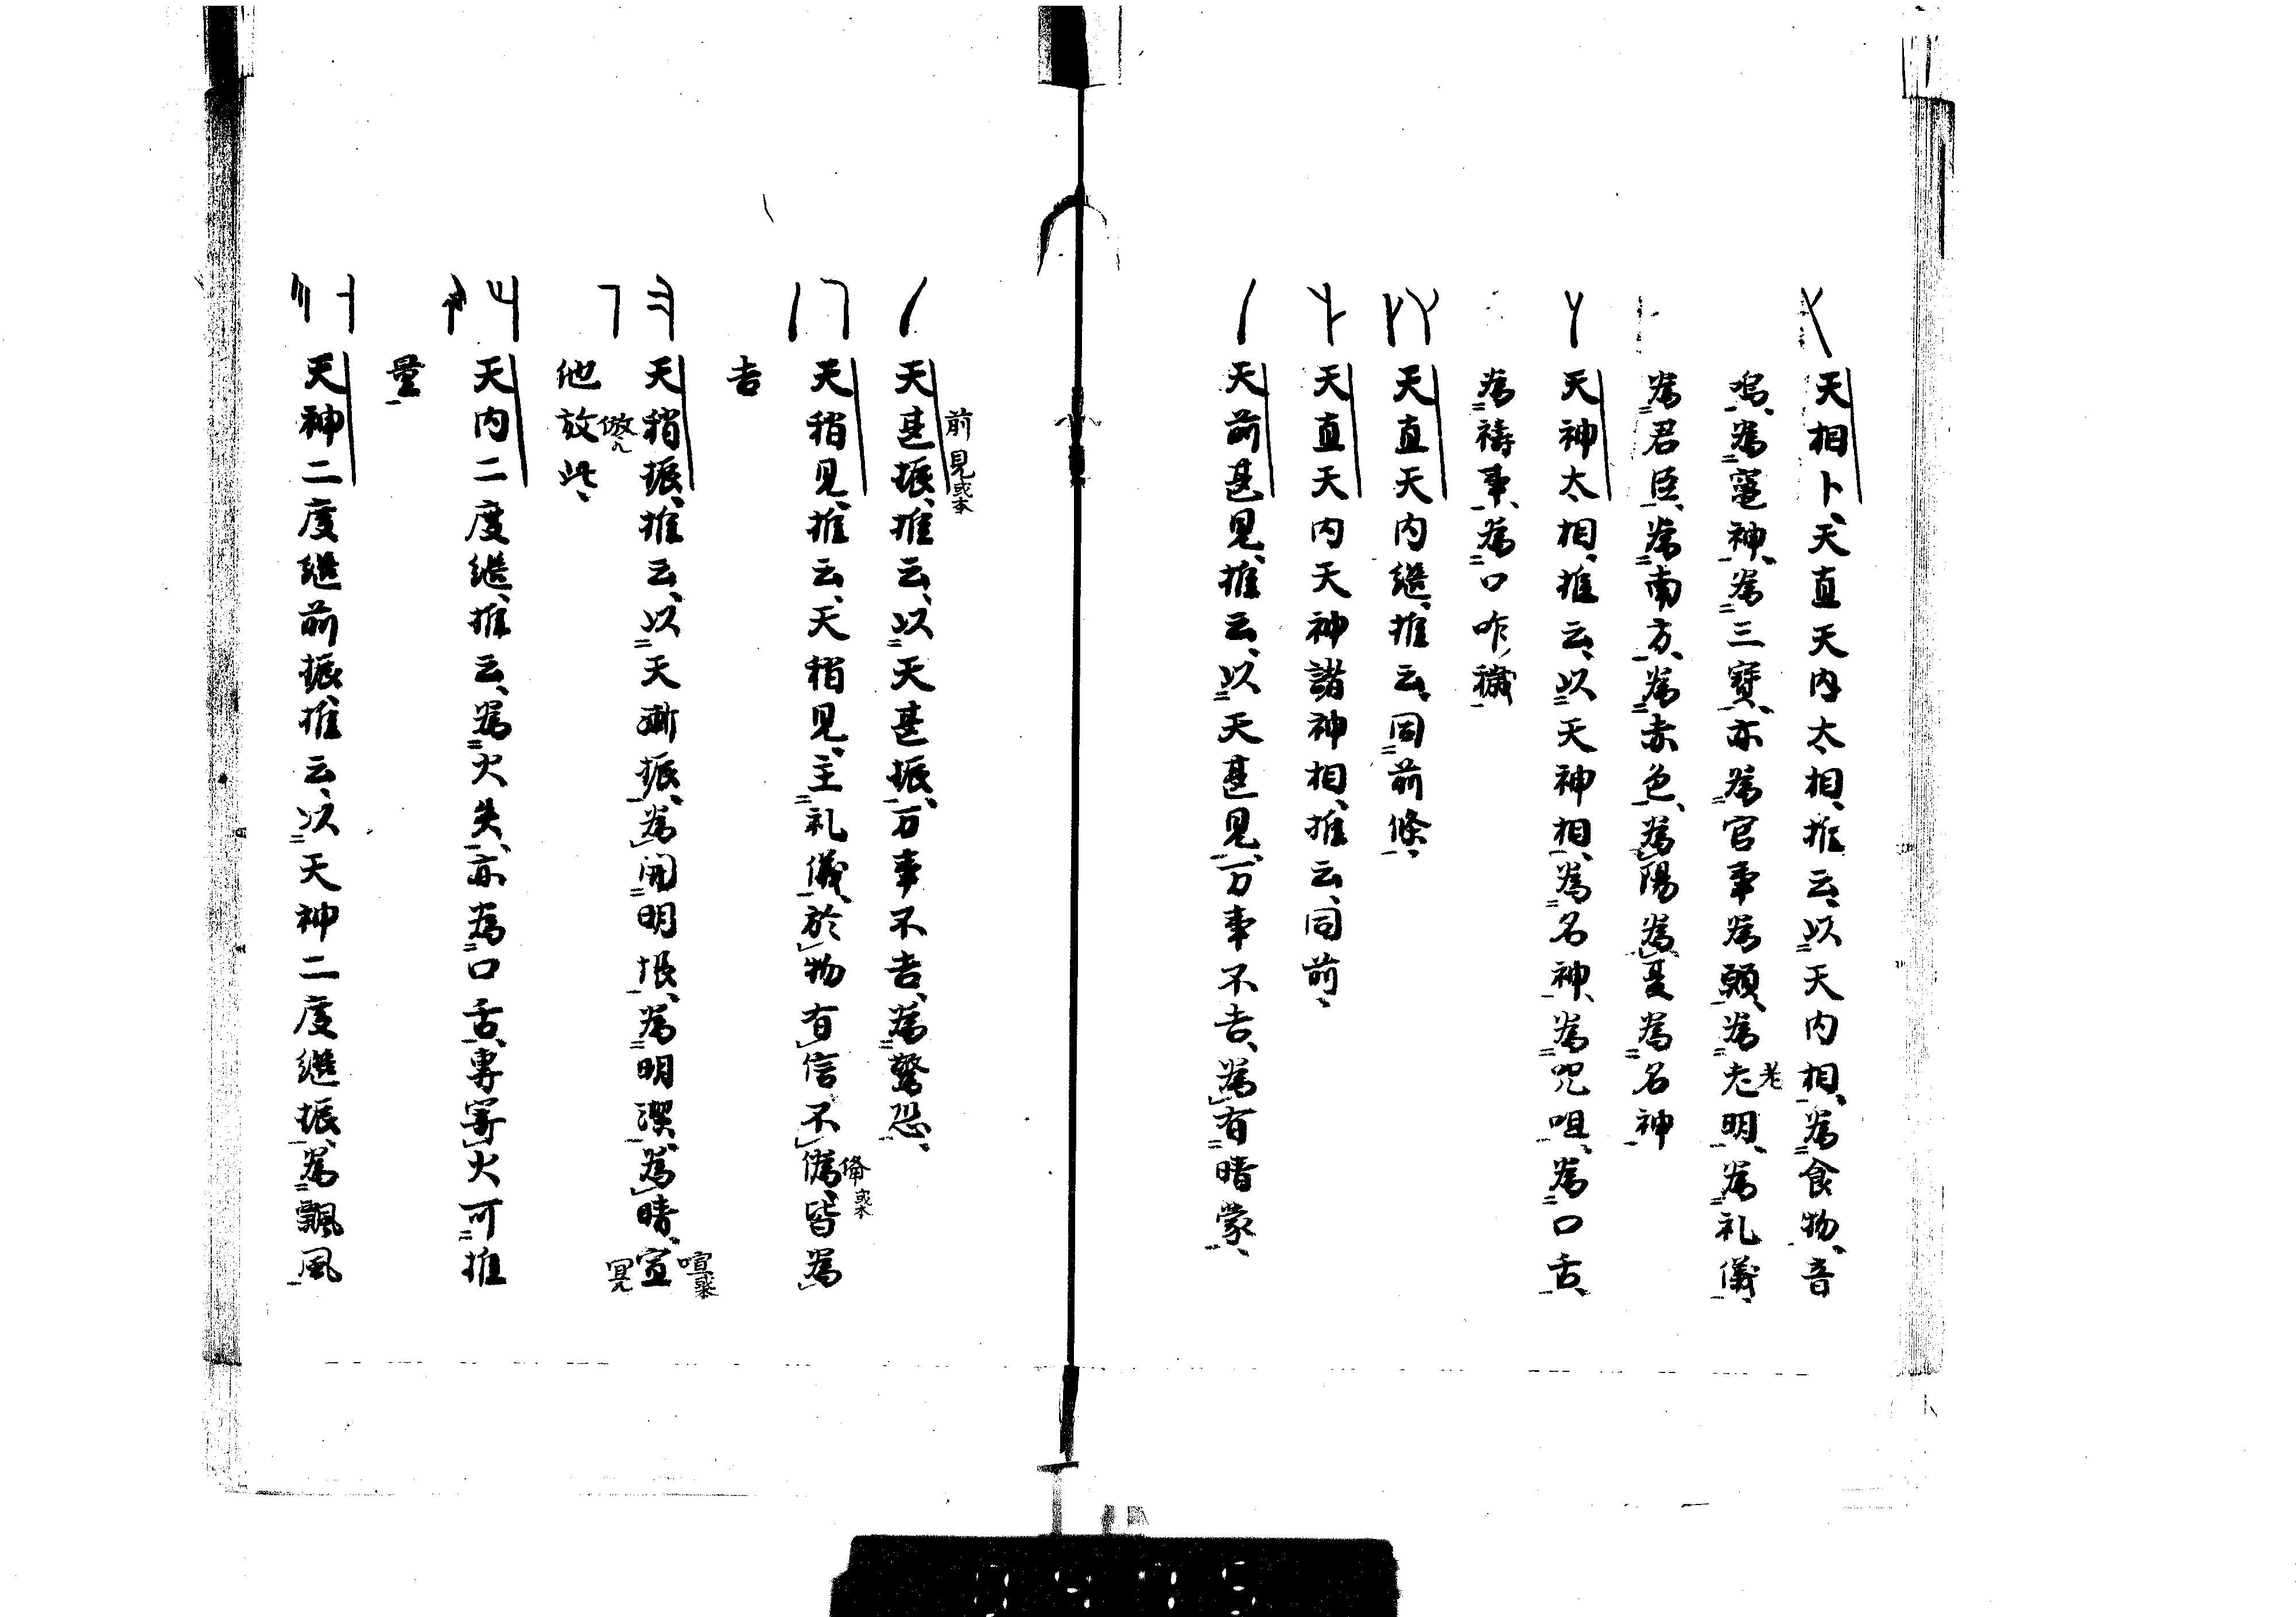 天相卜天直天内太相推云以天内相為食物音
鳴為竈神為三寶亦為官事為頭為老明為礼儀
老
為君臣為南方為赤色為陽為夏為名神
天神太相推云以天神相為名神為咒咀為口舌
為禱事為口咋
天直天内継推云同前條
天直天内天神諸神相推云同前
天前甚見推云以天甚見万事不吉為有暗蒙
前見或本
天甚振推云以天甚振万事不吉為驚恐
天稍見推云天稍見主礼儀於物有信不偽皆為
或本
吉
天稍振推云以天漸振為開明振為明潔為晴宣
喧或本
倣
他放此
天内二度継推云為火失亦為口舌専寄火可推
量
天神二度継前振推云以天神二度継振為飄風